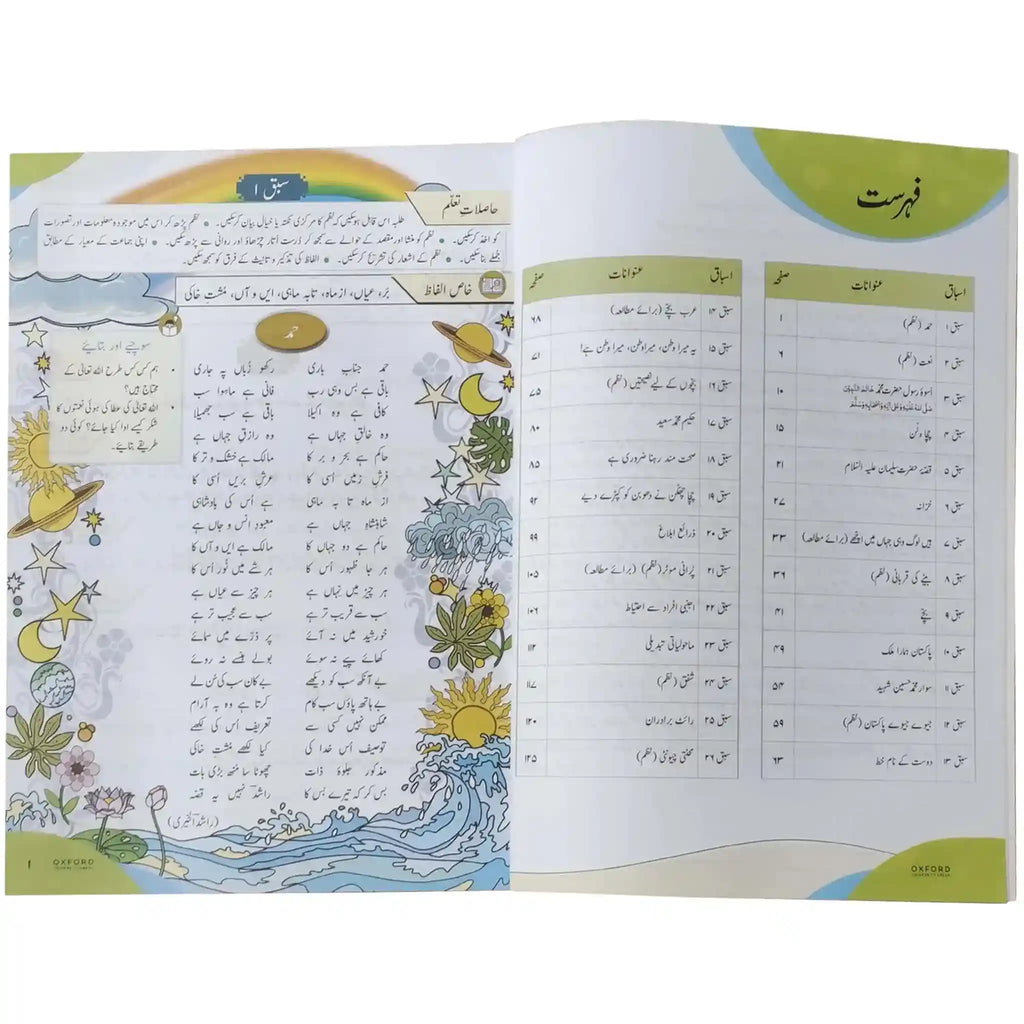 فہرست
اسباق عنوانات صفحہ
سبق ۱ حمد (نظم) ۱
سبق ۲ نعت (نظم) ۶
سبق ۳ اسوۂ رسول حضرت محمد خاتم النبیین صلی اللہ علیہ وعلیٰ آلہ واصحابہ وسلم ۱۰
سبق ۴ چچا وٹن ۱۵
سبق ۵ قصّہ حضرت سلیمان علیہ السّلام ۲۱
سبق ۶ خزانہ ۲۷
سبق ۷ ہیں لوگ وہی جہاں میں اچھے (برائے مطالعہ) ۳۳
سبق ۸ بیٹے کی قربانی (نظم) ۳۶
سبق ۹ بچّے ۴۱
سبق ۱۰ پاکستان ہمارا ملک ۴۹
سبق ۱۱ سوار محمد حسین شہید ۵۴
سبق ۱۲ جیوے جیوے پاکستان (نظم) ۵۹
سبق ۱۳ دوست کے نام خط ۶۳
اسباق عنوانات صفحہ
سبق ۱۴ عرب بچّے (برائے مطالعہ) ۶۸
سبق ۱۵ یہ میرا وطن، میرا وطن، میرا وطن ہے! ۷۱
سبق ۱۶ بچّوں کے لیے نصیحتیں (نظم) ۷۵
سبق ۱۷ حکیم محمد سعید ۸۰
سبق ۱۸ صحت مند رہنا ضروری ہے ۸۵
سبق ۱۹ چچا چھکّن نے دھوبن کو کپڑے دیے ۹۲
سبق ۲۰ ذرائع ابلاغ ۹۹
سبق ۲۱ پُرانی موٹر (نظم) (برائے مطالعہ) ۱۰۵
سبق ۲۲ اجنبی افراد سے احتیاط ۱۰۶
سبق ۲۳ ماحولیاتی تبدیلی ۱۱۲
سبق ۲۴ شفق (نظم) ۱۱۷
سبق ۲۵ رائٹ برادران ۱۲۰
سبق ۲۶ محنتی چیونٹی (نظم) ۱۲۵
OXFORD
UNIVERSITY PRESS
سبق ۱
حاصلاتِ تعلّم
طلبہ اس قابل ہوسکیں کہ نظم کا مرکزی نکتہ یا خیال بیان کرسکیں۔ • نظم پڑھ کر اس میں موجودہ معلومات اور تصورات
کو اخذ کرسکیں۔ • نظم کو منشا اور مقصد کے حوالے سے سمجھ کر درست اُتار چڑھاؤ اور روانی سے پڑھ سکیں۔ • اپنی جماعت کے معیار کے مطابق
جملے بناسکیں۔ • نظم کے اشعار کی تشریح کرسکیں۔ • الفاظ کی تذکیر و تانیث کے فرق کو سمجھ سکیں۔
خاص الفاظ
بَر، عیاں، از ماہ، تابہ ماہی، ایں و آں، مُشتِ خاکی
حمد
سوچیے اور بتائیے
• ہم کس کس طرح اللہ تعالیٰ کے
محتاج ہیں؟
• اللہ تعالیٰ کی عطا کی ہوئی نعمتوں کا
شکر کیسے ادا کیا جائے؟ کوئی دو
طریقے بتائیے۔
حمد جنابِ باری رکھو زُباں پہ جاری
باقی ہے بس وہی رب فانی ہے ماسوا سب
کافی ہے وہ اکیلا باقی ہے سب جھمیلا
وہ خالقِ جہاں ہے وہ رازقِ جہاں ہے
حاکم ہے بحر و بر کا مالک ہے خشک و تر کا
فرشِ زمیں اُسی کا عرشِ بریں اُسی کا
از ماہ تا بہ ماہی ہے اُس کی بادشاہی
شاہنشاہِ جہاں ہے معبودِ انس و جاں ہے
حاکم ہے دو جہاں کا مالک ہے ایں و آں کا
ہر جا ظہور اُس کا ہر شے میں نُور اُس کا
ہر چیز میں نہاں ہے ہر چیز سے عیاں ہے
سب سے قریب تر ہے سب سے عجیب تر ہے
خورشید میں نہ آئے پر ذرّے میں سمائے
کھائے ہے نہ سوئے بولے ہنسے نہ روئے
بے آنکھ سب کو دیکھے بے کان سب کی سُن لے
بے ہاتھ پاؤں سب کام کرتا ہے وہ بہ آرام
ممکن نہیں کسی سے تعریف اُس کی لکھے
توصیف اُس خدا کی کیا لکھے مُشتِ خاکی
مذکور جلوۂ ذات چھوٹا سا منھ بڑی بات
بس کر کہ تیرے بس کا راشدؔ نہیں یہ قصّہ
(راشد الخیری)
OXFORD
UNIVERSITY PRESS
۱